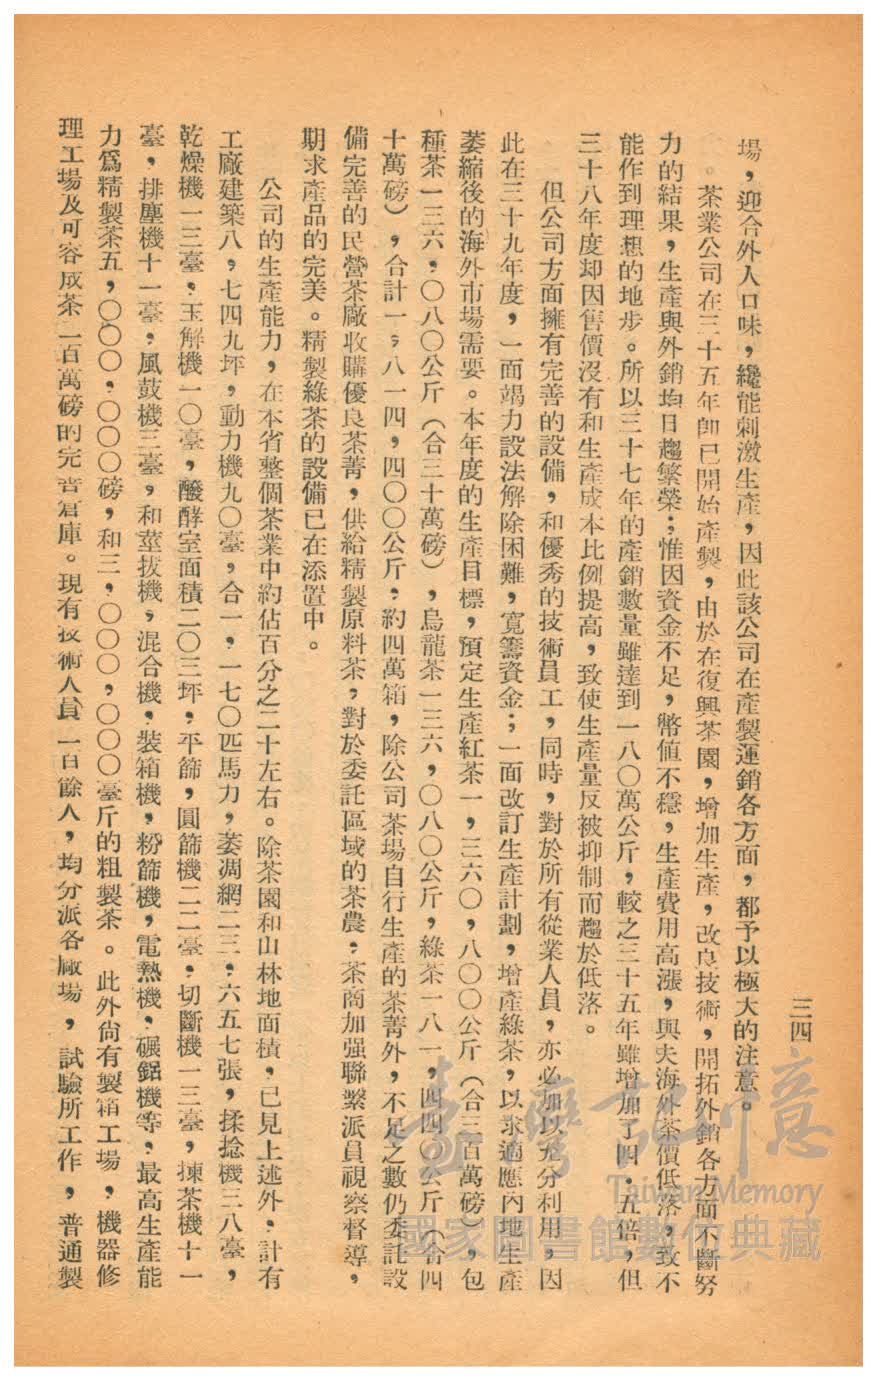 三四
場，迎合外人口味，纔能刺激生產，因此該公司在產製運銷各方面，都予以極大的注意。
茶業公司在三十五年卽已開始產製，由於在復興茶園，增加生產，改良技術，開拓外銷各方面不斷努
力的結果，生產與外銷均日趨繁榮；惟因資金不足，幣值不穩，生產費用高漲，與夫海外茶價低落，致不
能作到理想的地步。所以三十七年的產銷數量雖達到一八〇萬公斤，較之三十五年雖增加了四．五倍，但
三十八年度却因售價沒有和生產成本比例提高，致使生產量反被抑制而趨於低落。
但公司方面擁有完善的設備，和優秀的技術員工，同時，對於所有從業人員，亦必加以充分利用，因
此在三十九年度，一面竭力設法解除困難，寬籌資金；一面改訂生產計劃，增產綠茶，以求適應內地生產
萎縮後的海外市場需要。本年度的生產目標，預定生產紅茶一，三六〇，八〇〇公斤（合三百萬磅），包
種茶一三六，〇八〇公斤（合三十萬磅），烏龍茶一三六，〇八〇公斤，綠茶一八一，四四〇公斤（合四
十萬磅），合計一，八一四，四〇〇公斤，約四萬箱，除公司茶場自行生產的茶菁外，不足之數仍委託設
備完善的民營茶廠收購優良茶菁，供給精製原料茶，對於委託區域的茶農，茶商加强聯繫派員視察督導，
期求產品的完美。精製綠茶的設備已在添置中。
公司的生產能力，在本省整個茶業中約佔百分之二十左右。除茶園和山林地面積，已見上述外，計有
工廠建築八，七四九坪，動力機九〇臺，合一，一七〇匹馬力，萎凋網二三，六五七張，揉捻機三八臺，
乾燥機一三臺，玉解機一〇臺，醱酵室面積二〇三坪，平篩，圓篩機二二臺，切斷機一三臺，揀茶機十一
臺，排塵機十一臺，風鼓機三臺，和莖拔機，混合機，裝箱機，粉篩機，電熱機，碾鋸機等，最高生產能
力爲精製茶五，〇〇〇，〇〇〇磅，和三，〇〇〇，〇〇〇臺斤的粗製茶。此外尙有製箱工場，機器修
理工場及可容成茶一百萬磅的完善倉庫。現有技術人員一百餘人，均分派各廠場，試驗所工作，普通製
臺灣記憶
Taiwan Memory
國家圖書館數位典藏